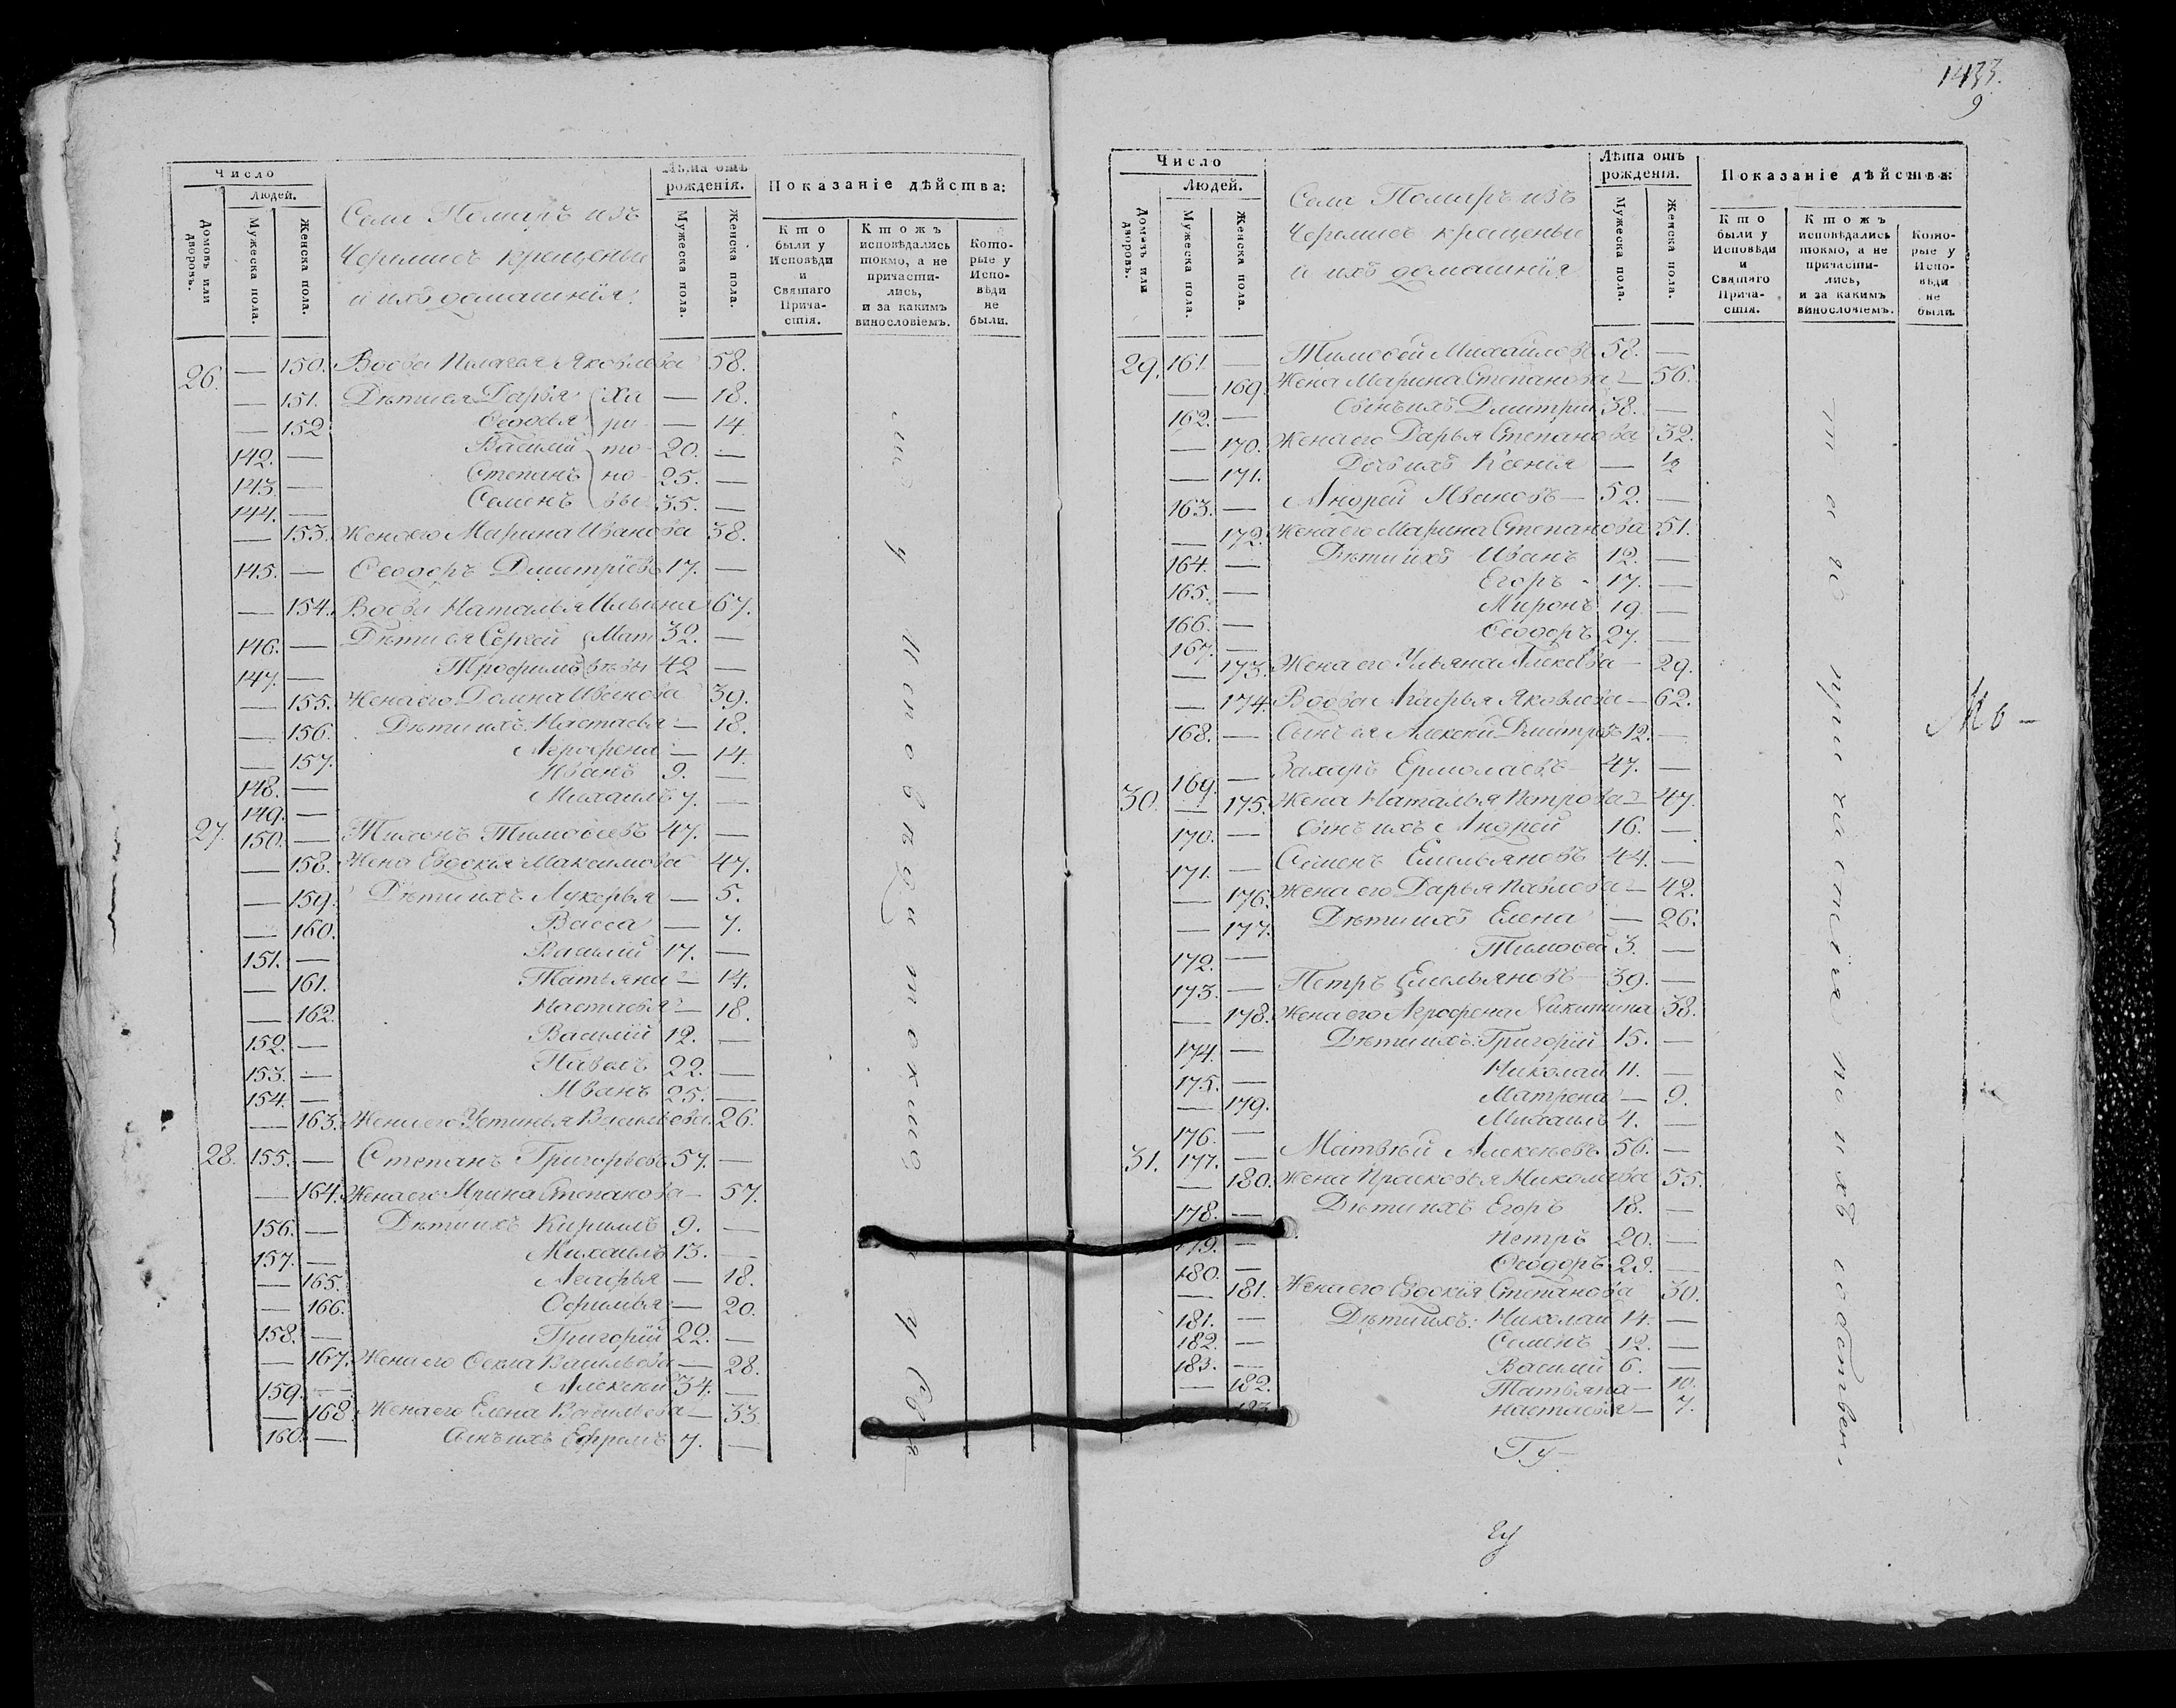 1433.
9
Число
Людей.
Домовъ или дворовъ.
Мужеска пола.
Женска пола.
Села Помиръ изъ
Черемисъ крещеныи
и ихъ домашнія.
Лѣта отъ рожденія.
Мужеска пола.
Женска пола.
Показаніе дѣйства:
Кто были у Исповѣди и Святаго Прича-стія.
Ктожъ исповѣдались токмо, а не причасти-лись, и за какимъ винословіемъ.
Кото-рые у Испо-вѣди не были.
26. — 150. Вдова Пелагея Яковлева 58.
— 151. Дѣти ея Дарья Ха — 18.
— 152 Ѳеодосья ри — 14
142. — Василій то 20. —
143. — Степанъ но 25. —
144. — Семенъ вы 35. —
— 153. Жена его Марина Иванова 38.
145. — Ѳеодоръ Дмитріевъ 17. —
— 154. Вдова Наталья Ильина 67.
146. — Дѣти ея Сергей Мат 32. —
147. — Трофимъ вѣвы 42 —
— 155. Жена его Домна Иванова 39.
— 156. Дѣти ихъ Настасья — 18.
— 157. Агрофена — 14.
148. — Иванъ 9. —
149. — Михаилъ 7. —
27. 150. — Тихонъ Тимоѳеевъ 47. —
— 158. Жена Евдокія Максимова 47.
— 159. Дѣти ихъ Лукерья — 5.
— 160. Васса — 7.
151. — Василій 17. —
— 161. Татьяна — 14.
— 162. Настасья — 18.
152. — Василій 12. —
153. — Павелъ 22. —
154. — Иванъ 25. —
— 163. Жена его Устинья Васильева 26.
28. 155. — Степанъ Григорьевъ 57. —
— 164. Жена его Ирина Степанова — 57.
156. — Дѣти ихъ Кирилъ 9. —
157. — Михаилъ 13. —
— 165. Агафья — 18.
— 166. Офимья — 20.
158. — Григорій 22. —
— 167. Жена его Ѳекла Васильева — 28.
159. — Алексѣй 34. —
— 168 Жена его Елена Васильева — 33
160. — Сынъ ихъ Ефремъ 7. —
сіи у Исповѣди токмо
Число
Людей.
Домовъ или дворовъ.
Мужеска пола.
Женска пола.
Села Помиръ изъ
Черемисъ крещеныи
и ихъ домашнія
Лѣта отъ рожденія.
Мужеска пола.
Женска пола.
Показаніе дѣйства:
Кто были у Исповѣди и Святаго Прича-стія.
Ктожъ исповѣдались токмо, а не причасти-лись, и за какимъ винословіемъ.
Кото-рые у Испо-вѣди не были.
29. 161. — Тимоѳей Михайловъ 58. —
— 169. Жена Марина Степанова — 56.
162. — Сынъ ихъ Дмитрій 38. —
— 170. Жена его Дарья Степанова 32.
— 171. Дочь ихъ Ксенія — ½
163. — Андрей Ивановъ — 52. —
— 172. Жена его Марина Степанова 51.
164. — Дѣти ихъ Иванъ 12. —
165. — Егоръ 17. —
166. — Миронъ 19. —
167. — Ѳеодоръ 27. —
— 173. Жена его Ульяна Алексѣева — 29.
— 174 Вдова Агафья Яковлева — 62.
168. — Сынъ ея Алексѣй Дмитревъ 12. —
30. 169. — Захаръ Ермолаевъ 47. —
— 175. Жена Наталья Петрова — 47.
170. — Сынъ ихъ Андрей 16. —
171. — Семенъ Емельяновъ 44. —
— 176. Жена его Дарья Павлова — 42.
— 177. Дѣти ихъ Елена — 26.
172. — Тимоѳей 3. —
173. — Петръ Емельяновъ 39. —
— 178. Жена его Агрофена Никитина 38.
174. — Дѣти ихъ: Григорій 15. —
175. — Николай 11. —
— 179. Матрена — 9.
176. — Михаилъ 4. —
31. 177. — Матвѣй Алексѣевъ 56. —
— 180. Жена Прасковья Николаева 55.
178. — Дѣти ихъ Егоръ 18. —
179. — Петръ 20. —
180. — Ѳеодоръ 28. —
— 181. Жена его Евдокія Степанова 30.
181. — Дѣти ихъ: Николай 14. —
182. — Семенъ 12. —
183. — Василій 6. —
— 182. Татьяна — 10.
— 183. Настасья — 7.
причастія по ихъ собствен-
Мо —
Гу —